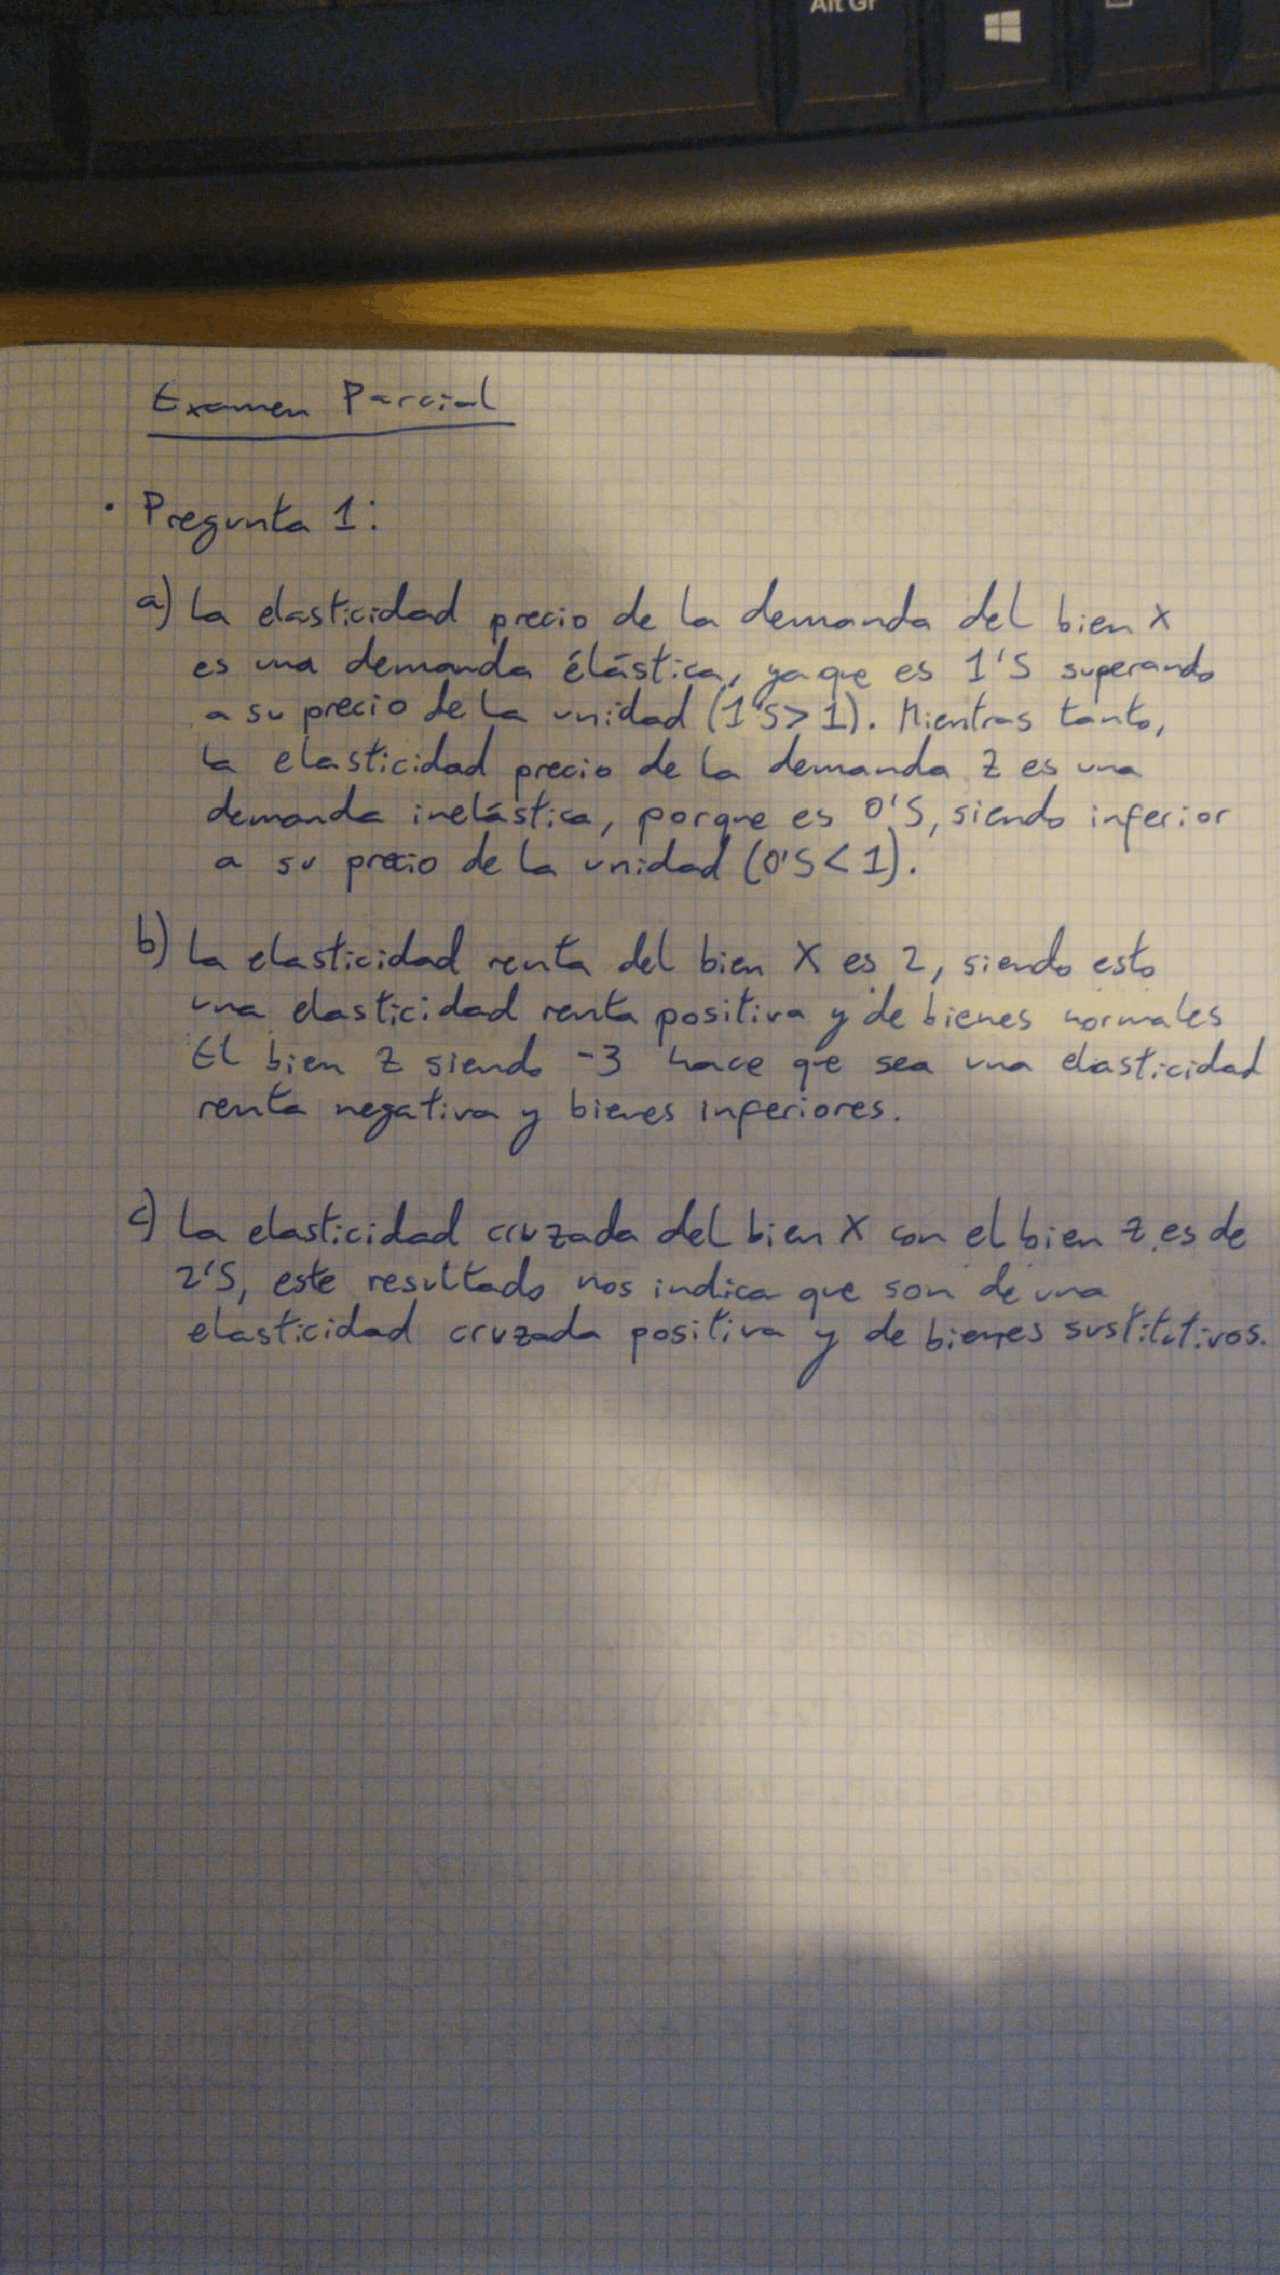 Alt Gr
Examen Parcial
· Pregunta 1:
a) La elasticidad precio de la demanda del bien X
es una demanda élástica, ya que es 1'5 superando
a su precio de la unidad (1'5 > 1). Mientras tanto,
la elasticidad precio de la demanda Z es una
demanda inelástica, porque es 0'5, siendo inferior
a su precio de la unidad (0'5 < 1).
b) La elasticidad renta del bien X es 2, siendo esto
una elasticidad renta positiva y de bienes normales
El bien Z siendo -3 hace que sea una elasticidad
renta negativa y bienes inferiores.
c) La elasticidad cruzada del bien X con el bien Z es de
2'5, este resultado nos indica que son de una
elasticidad cruzada positiva y de bienes sustitutivos.